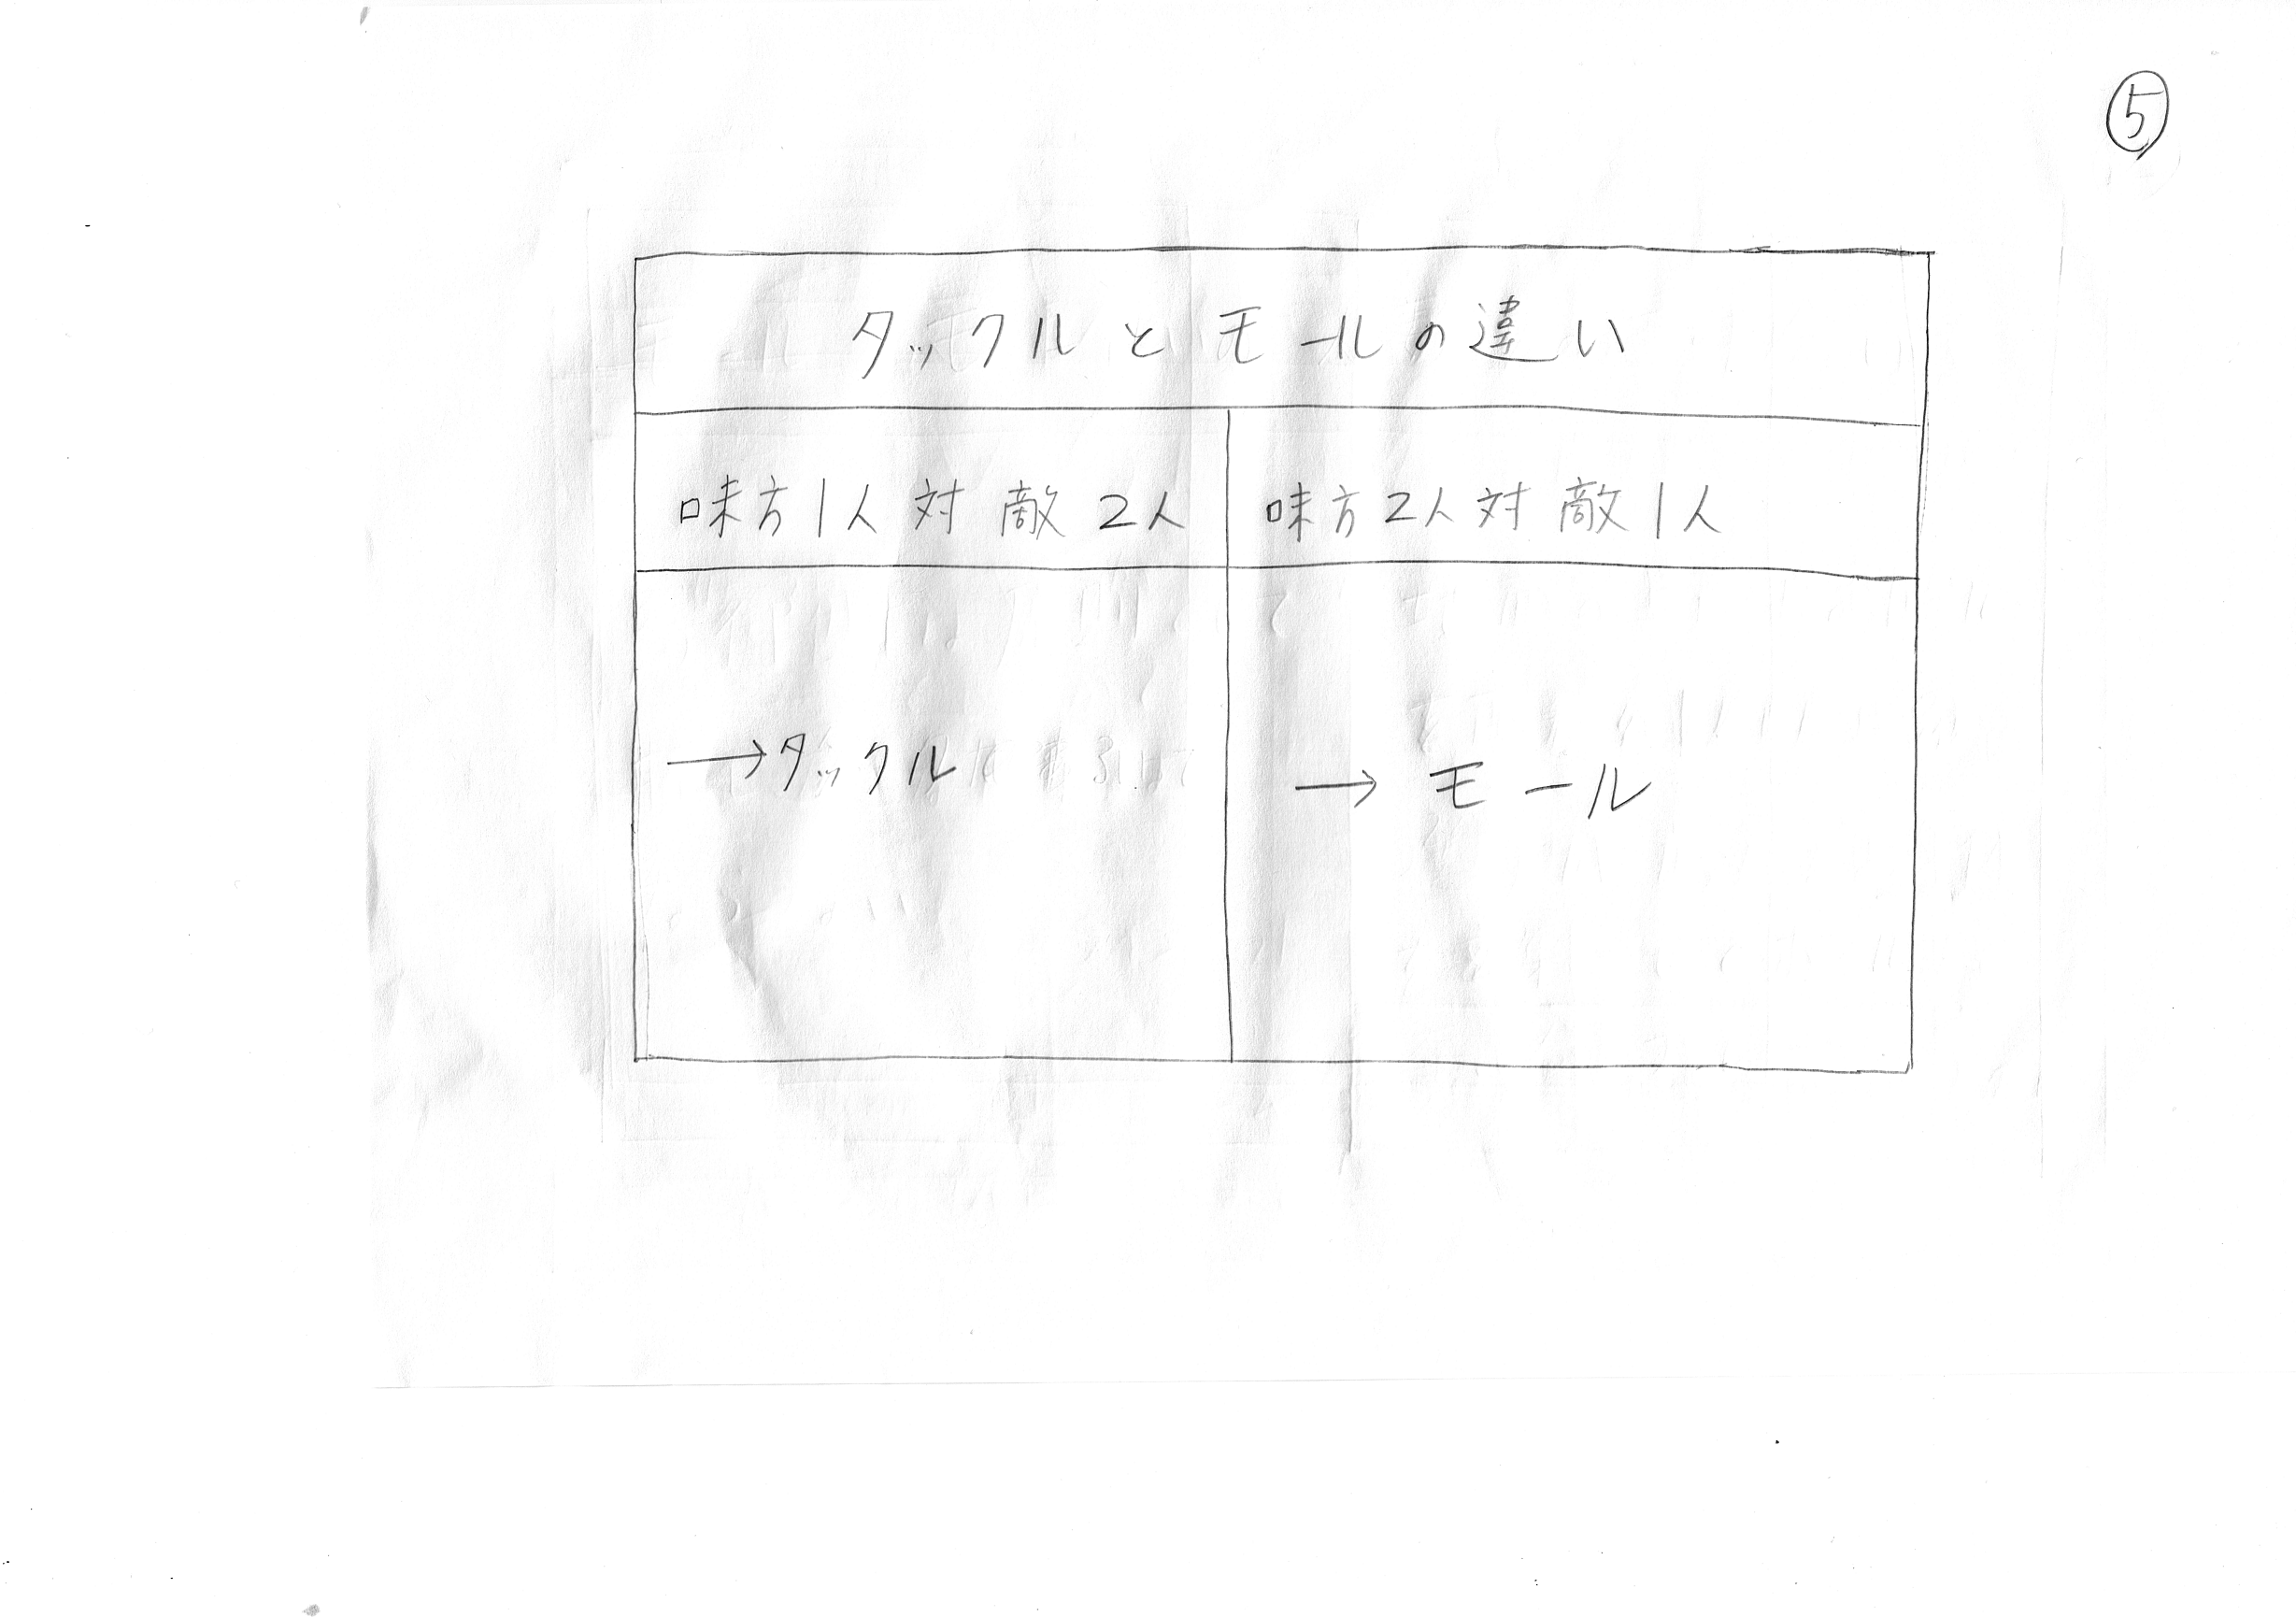 ⑤
タックルとモールの違い
味方1人対敵2人
味方2人対敵1人
→タックル
→モール